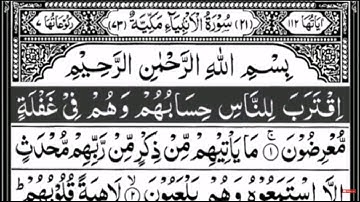 اٰيَاتُهَا ١١٢ (٢١) سُوْرَةُ الْاَنْۢبِيَآءِ مَكِّيَّةٌ (٧٣) رُكُوْعَاتُهَا ٧
بِسْمِ اللّٰهِ الرَّحْمٰنِ الرَّحِيْمِ
اِقْتَرَبَ لِلنَّاسِ حِسَابُهُمْ وَهُمْ فِيْ غَفْلَةٍ
مُّعْرِضُوْنَ ۚ ١ مَا يَاْتِيْهِمْ مِّنْ ذِكْرٍ مِّنْ رَّبِّهِمْ مُّحْدَثٍ
اِلَّا اسْتَمَعُوْهُ وَهُمْ يَلْعَبُوْنَ ۙ ٢ لَاهِيَةً قُلُوْبُهُمْ ؕ